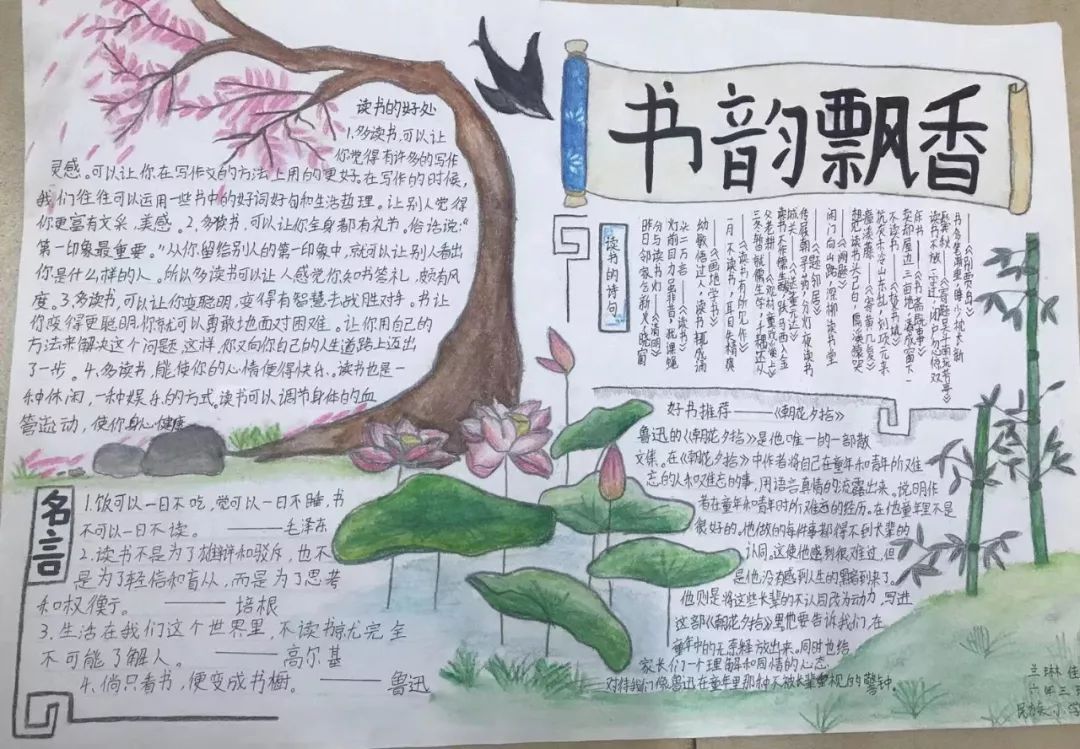 书韵飘香
读书的好处
1.多读书,可以让
你觉得有许多的写作
灵感。可以让你在写作文的方法上用的更好。在写作的时候,
我们往往可以运用一些书中的好词好句和生活哲理。让别人觉得
你更富有文采,美感。2.多读书,可以让你全身都有礼节。俗话说:"
第一印象最重要。"从你留给别人的第一印象中,就可以让别人看出
你是什么样的人。所以多读书可以让人感觉你知书答礼,颇有风
度。3.多读书,可以让你变聪明,变得有智慧去战胜对手。书让
你变得更聪明,你就可以勇敢地面对困难。让你用自己的
方法来解决这个问题。这样,你又向你自己的人生道路上迈出
了一步。4.多读书,能使你的心情便得快乐。读书也是一
种休闲,一种娱乐的方式。读书可以调节身体的血
管流动,使你身心健康
读书的诗句
幼敏悟过人,读书辄成诵
《画地学书》
一月不读书,耳目失精爽
《读书有所见作》
《题邻居》
闲门向山路,深柳读书堂
《阙题》
坑灰未冷山东乱,刘项元来
不读书
想见读书头已白,隔溪猿哭
瘴溪藤
《寄黄几复》
好书推荐——《朝花夕拾》
鲁迅的《朝花夕拾》是他唯一的一部散
文集。在《朝花夕拾》中作者将自己在童年和青年所难
忘的人和难忘的事,用语言真情的流露出来。说明作
者在童年和青年时所难忘的经历。在他童年里不是
很好的。他做的每件事都得不到长辈的
认同。这使他感到很难过,但
是他没有感到人生的黑暗到来了。
他则是将这些长辈的不认同改为动力,写进
这部《朝花夕拾》里他要告诉我们,在
童年中的无奈释放出来。同时也给
家长们一个理解和同情的心态
对待我们像鲁迅在童年里那种不被长辈重视的警钟。
名言
1.饭可以一日不吃,觉可以一日不睡,书
不可以一日不读。——毛泽东
2.读书不是为了雄辩和驳斥,也不
是为了轻信和盲从,而是为了思考
和权衡。——培根
3.生活在我们这个世界里,不读书就完全
不可能了解人。——高尔基
4.倘只看书,便变成书橱。——鲁迅
兰琳佳
六年三班
民族小学